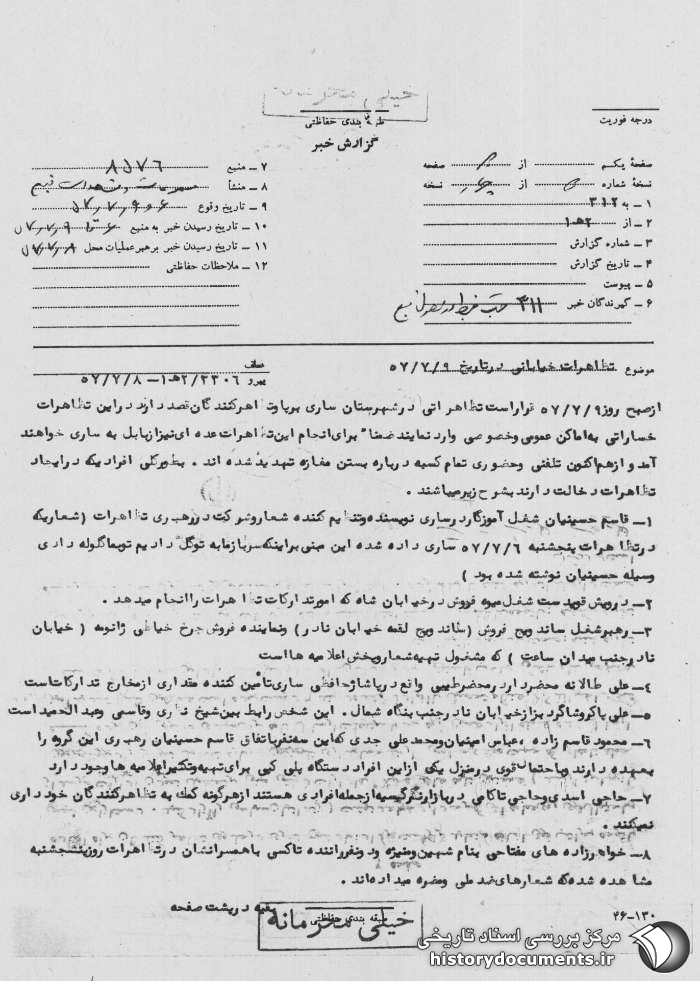 خیلی محرمانه
طبقه بندی حفاظتی
درجه فوریت
گزارش خبر
صفحهٔ یکم از صفحه
نسخهٔ شماره از نسخه
۱ ــ به ۳۱۲
۲ ــ از ۲هـ۱
۳ ــ شماره گزارش
۴ ــ تاریخ گزارش
۵ ــ پیوست
۶ ــ گیرندگان خبر ۳۱۱
۷ ــ منبع ۸۵۷۶
۸ ــ منشأ
۹ ــ تاریخ وقوع
۱۰ ــ تاریخ رسیدن خبر به منبع
۱۱ ــ تاریخ رسیدن خبر برهبر عملیات محل
۱۲ ــ ملاحظات حفاظتی
موضوع تظاهرات خیابانی در تاریخ ۵۷/۷/۹
پیرو ۲۳۰۶/۲هـ۱ــ ۵۷/۷/۸
ازصبح روز ۵۷/۷/۹ قراراست تظاهراتی درشهرستان ساری برپا وتظاهرکنندگان قصد دارند دراین تظاهرات
خساراتی به اماکن عمومی وخصوصی وارد نمایند ضمنا" برای انجام این تظاهرات عده ای نیزاز بابل به ساری خواهند
آمد و ازهم اکنون تلفنی وحضوری تمام کسبه درباره بستن مغازه تهدید شده اند . بطورکلی افرادیکه درایجاد
تظاهرات دخالت دارند بشرح زیر میباشند .
۱ــ قاسم حسینیان شغل آموزگار در ساری نویسنده وتنظیم کننده شعار وشرکت در رهبری تظاهرات (شعاریکه
درتظاهرات پنجشنبه ۵۷/۷/۶ ساری داده شده این مبنی براینکه سرباز ما به تو گل دادیم تو بما گلوله دادی
وسیله حسینیان نوشته شده بود )
۲ــ درویش قویدست شغل میوه فروش درخیابان شاه که امور تدارکات تظاهرات را انجام میدهد .
۳ــ رهبر شغل ساندویچ فروش (ساندویچ لقمه خیابان نادر) ونماینده فروش چرخ خیاطی ژانومه ( خیابان
نادر جنب میدان ساعت ) که مشغول تهیه شعار وپخش اعلامیه ها است
۴ــ علی طالانه محضردار در محضر طبیبی واقع در پاساژ حافظی ساری تأمین کننده مقداری ازمخارج تدارکات است
۵ــ علی باکروشاگرد بزاز خیابان نادر جنب بنگاه شمال . این شخص رابط بین شیخ نظری وقاسمی وعبدالحمید است
۶ــ محمود قاسم زاده ، عباس امینیان ومحمدعلی جدی که این سه نفر باتفاق قاسم حسینیان رهبری این گروه را
بعهده دارند وباحتمال قوی درمنزل یکی ازاین افراد دستگاه پلی کپی برای تهیه وتکثیر اعلامیه ها وجود دارد
۷ــ حاجی اسدی وحاجی تاکامی در بازار نرگسیه ازجمله افرادی هستند ازهرگونه کمک به تظاهرکنندگان خودداری
نمیکنند .
۸ــ خواهرزاده های مفتاحی بنام شهین ومنیژه ودونفر راننده تاکسی باهمسرانشان درتظاهرات روز پنجشنبه
مشاهده شده که شعارهای ضدملی ومضره میداده اند .
بقیه درپشت صفحه
۴۶-۱۳۰
طبقه بندی حفاظتی
خیلی محرمانه
مرکز بررسی اسناد تاریخی
historydocuments.ir